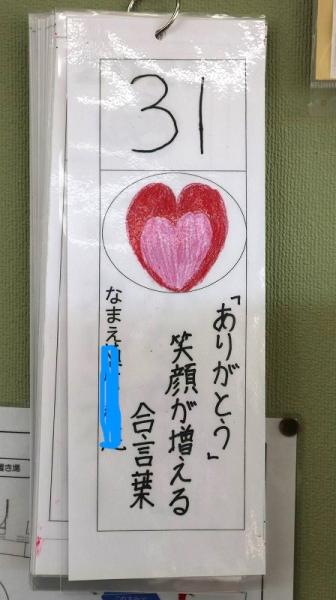 31
「ありがとう」
笑顔が増える
合言葉
なまえ
置き場